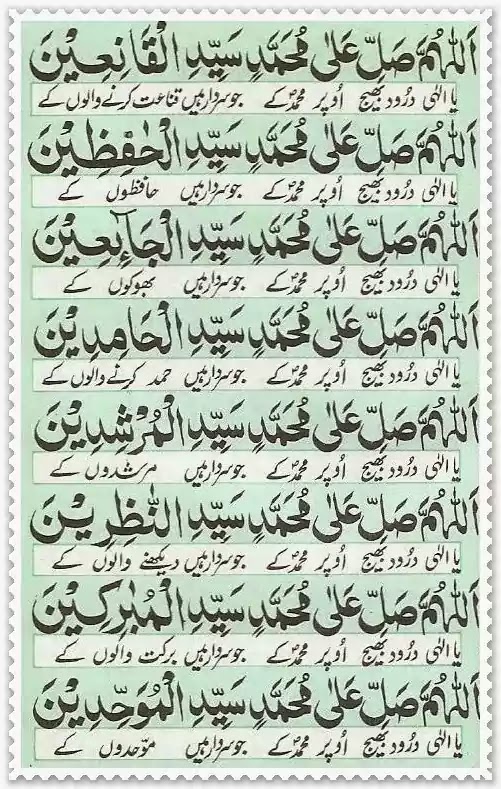 اَللّٰهُمَّ صَلِّ عَلٰى مُحَمَّدٍ سَيِّدِ الْقَانِعِيْنَ
یا الٰہی درود بھیج اُوپر محمدؐ کے جو سردار ہیں قناعت کرنے والوں کے
اَللّٰهُمَّ صَلِّ عَلٰى مُحَمَّدٍ سَيِّدِ الْحٰفِظِيْنَ
یا الٰہی درود بھیج اُوپر محمدؐ کے جو سردار ہیں حافظوں کے
اَللّٰهُمَّ صَلِّ عَلٰى مُحَمَّدٍ سَيِّدِ الْجَآئِعِيْنَ
یا الٰہی درود بھیج اُوپر محمدؐ کے جو سردار ہیں بھوکوں کے
اَللّٰهُمَّ صَلِّ عَلٰى مُحَمَّدٍ سَيِّدِ الْحَامِدِيْنَ
یا الٰہی درود بھیج اُوپر محمدؐ کے جو سردار ہیں حمد کرنے والوں کے
اَللّٰهُمَّ صَلِّ عَلٰى مُحَمَّدٍ سَيِّدِ الْمُرْشِدِيْنَ
یا الٰہی درود بھیج اُوپر محمدؐ کے جو سردار ہیں مرشدوں کے
اَللّٰهُمَّ صَلِّ عَلٰى مُحَمَّدٍ سَيِّدِ النّٰظِرِيْنَ
یا الٰہی درود بھیج اُوپر محمدؐ کے جو سردار ہیں دیکھنے والوں کے
اَللّٰهُمَّ صَلِّ عَلٰى مُحَمَّدٍ سَيِّدِ الْمُبٰرَكِيْنَ
یا الٰہی درود بھیج اُوپر محمدؐ کے جو سردار ہیں برکت والوں کے
اَللّٰهُمَّ صَلِّ عَلٰى مُحَمَّدٍ سَيِّدِ الْمُوَحِّدِيْنَ
یا الٰہی درود بھیج اُوپر محمدؐ کے جو سردار ہیں موحّدوں کے